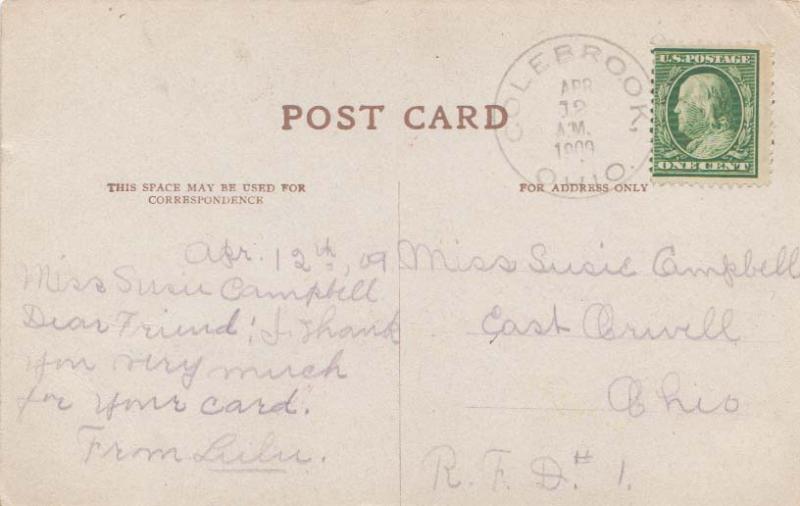 COLEBROOK, OHIO.
APR
12
A.M.
1909
U.S. POSTAGE
ONE CENT
POST CARD
THIS SPACE MAY BE USED FOR
CORRESPONDENCE
FOR ADDRESS ONLY
Apr. 12th, 09
Miss Susie Campbell
Dear Friend; I thank
you very much
for your card.
From Lulu.
Miss Susie Campbell
East Orwell
Ohio
R. F. D. # 1.